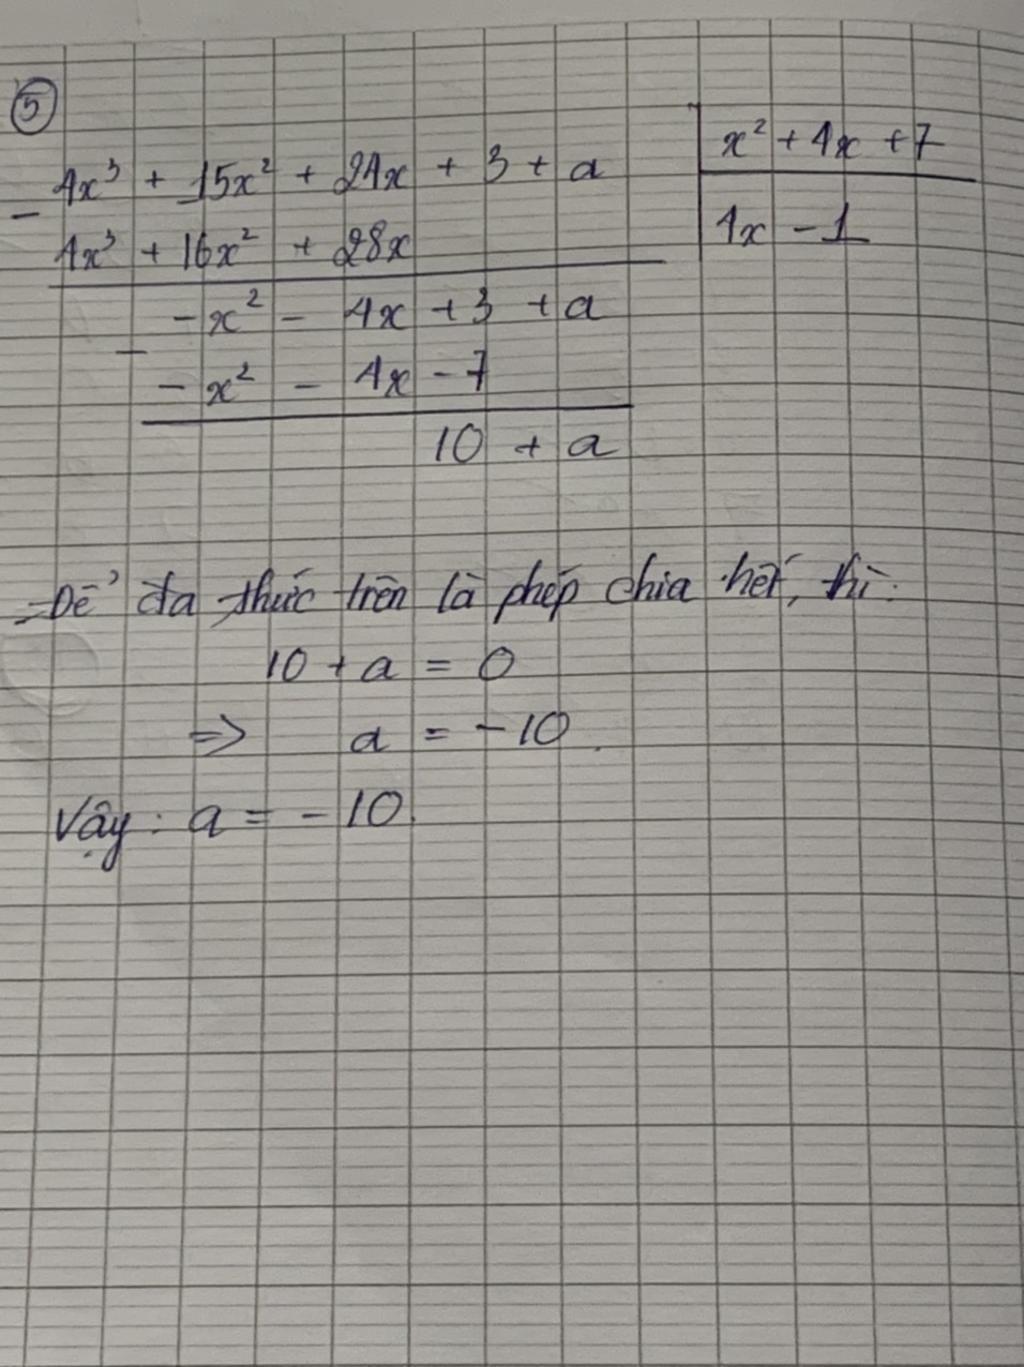 5
4x³ + 15x² + 24x + 3 + a
x² + 4x + 7
-
4x³ + 16x² + 28x
4x - 1
-x² - 4x + 3 + a
-
-x² - 4x - 7
10 + a
- Để đa thức trên là phép chia hết, thì:
10 + a = 0
⇒ a = -10.
Vậy: a = -10.